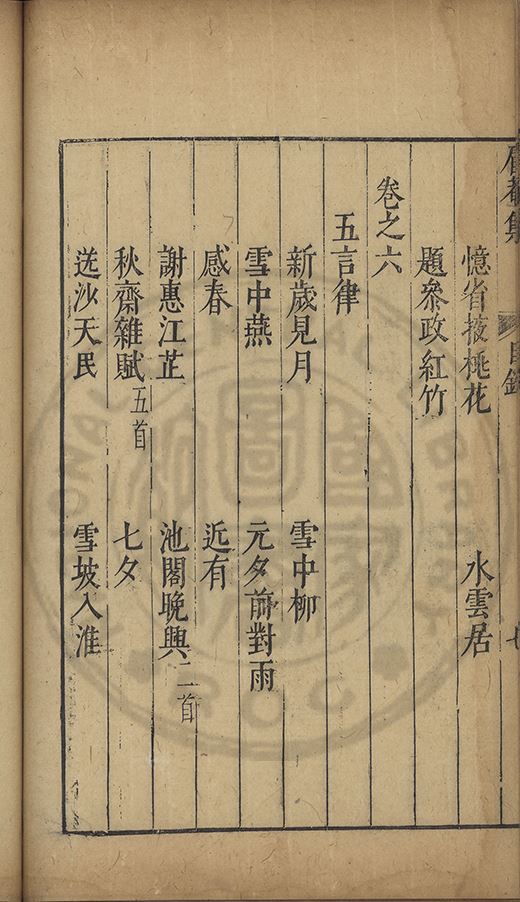 目錄
憶省掖桃花 水雲居
題參政紅竹
卷之六
五言律
新歲見月 雪中柳
雪中燕 元夕前對雨
感春 近有
謝惠江芷 池閣晚興二首
秋齋雜賦五首 七夕
送沙天民 雪坡入淮